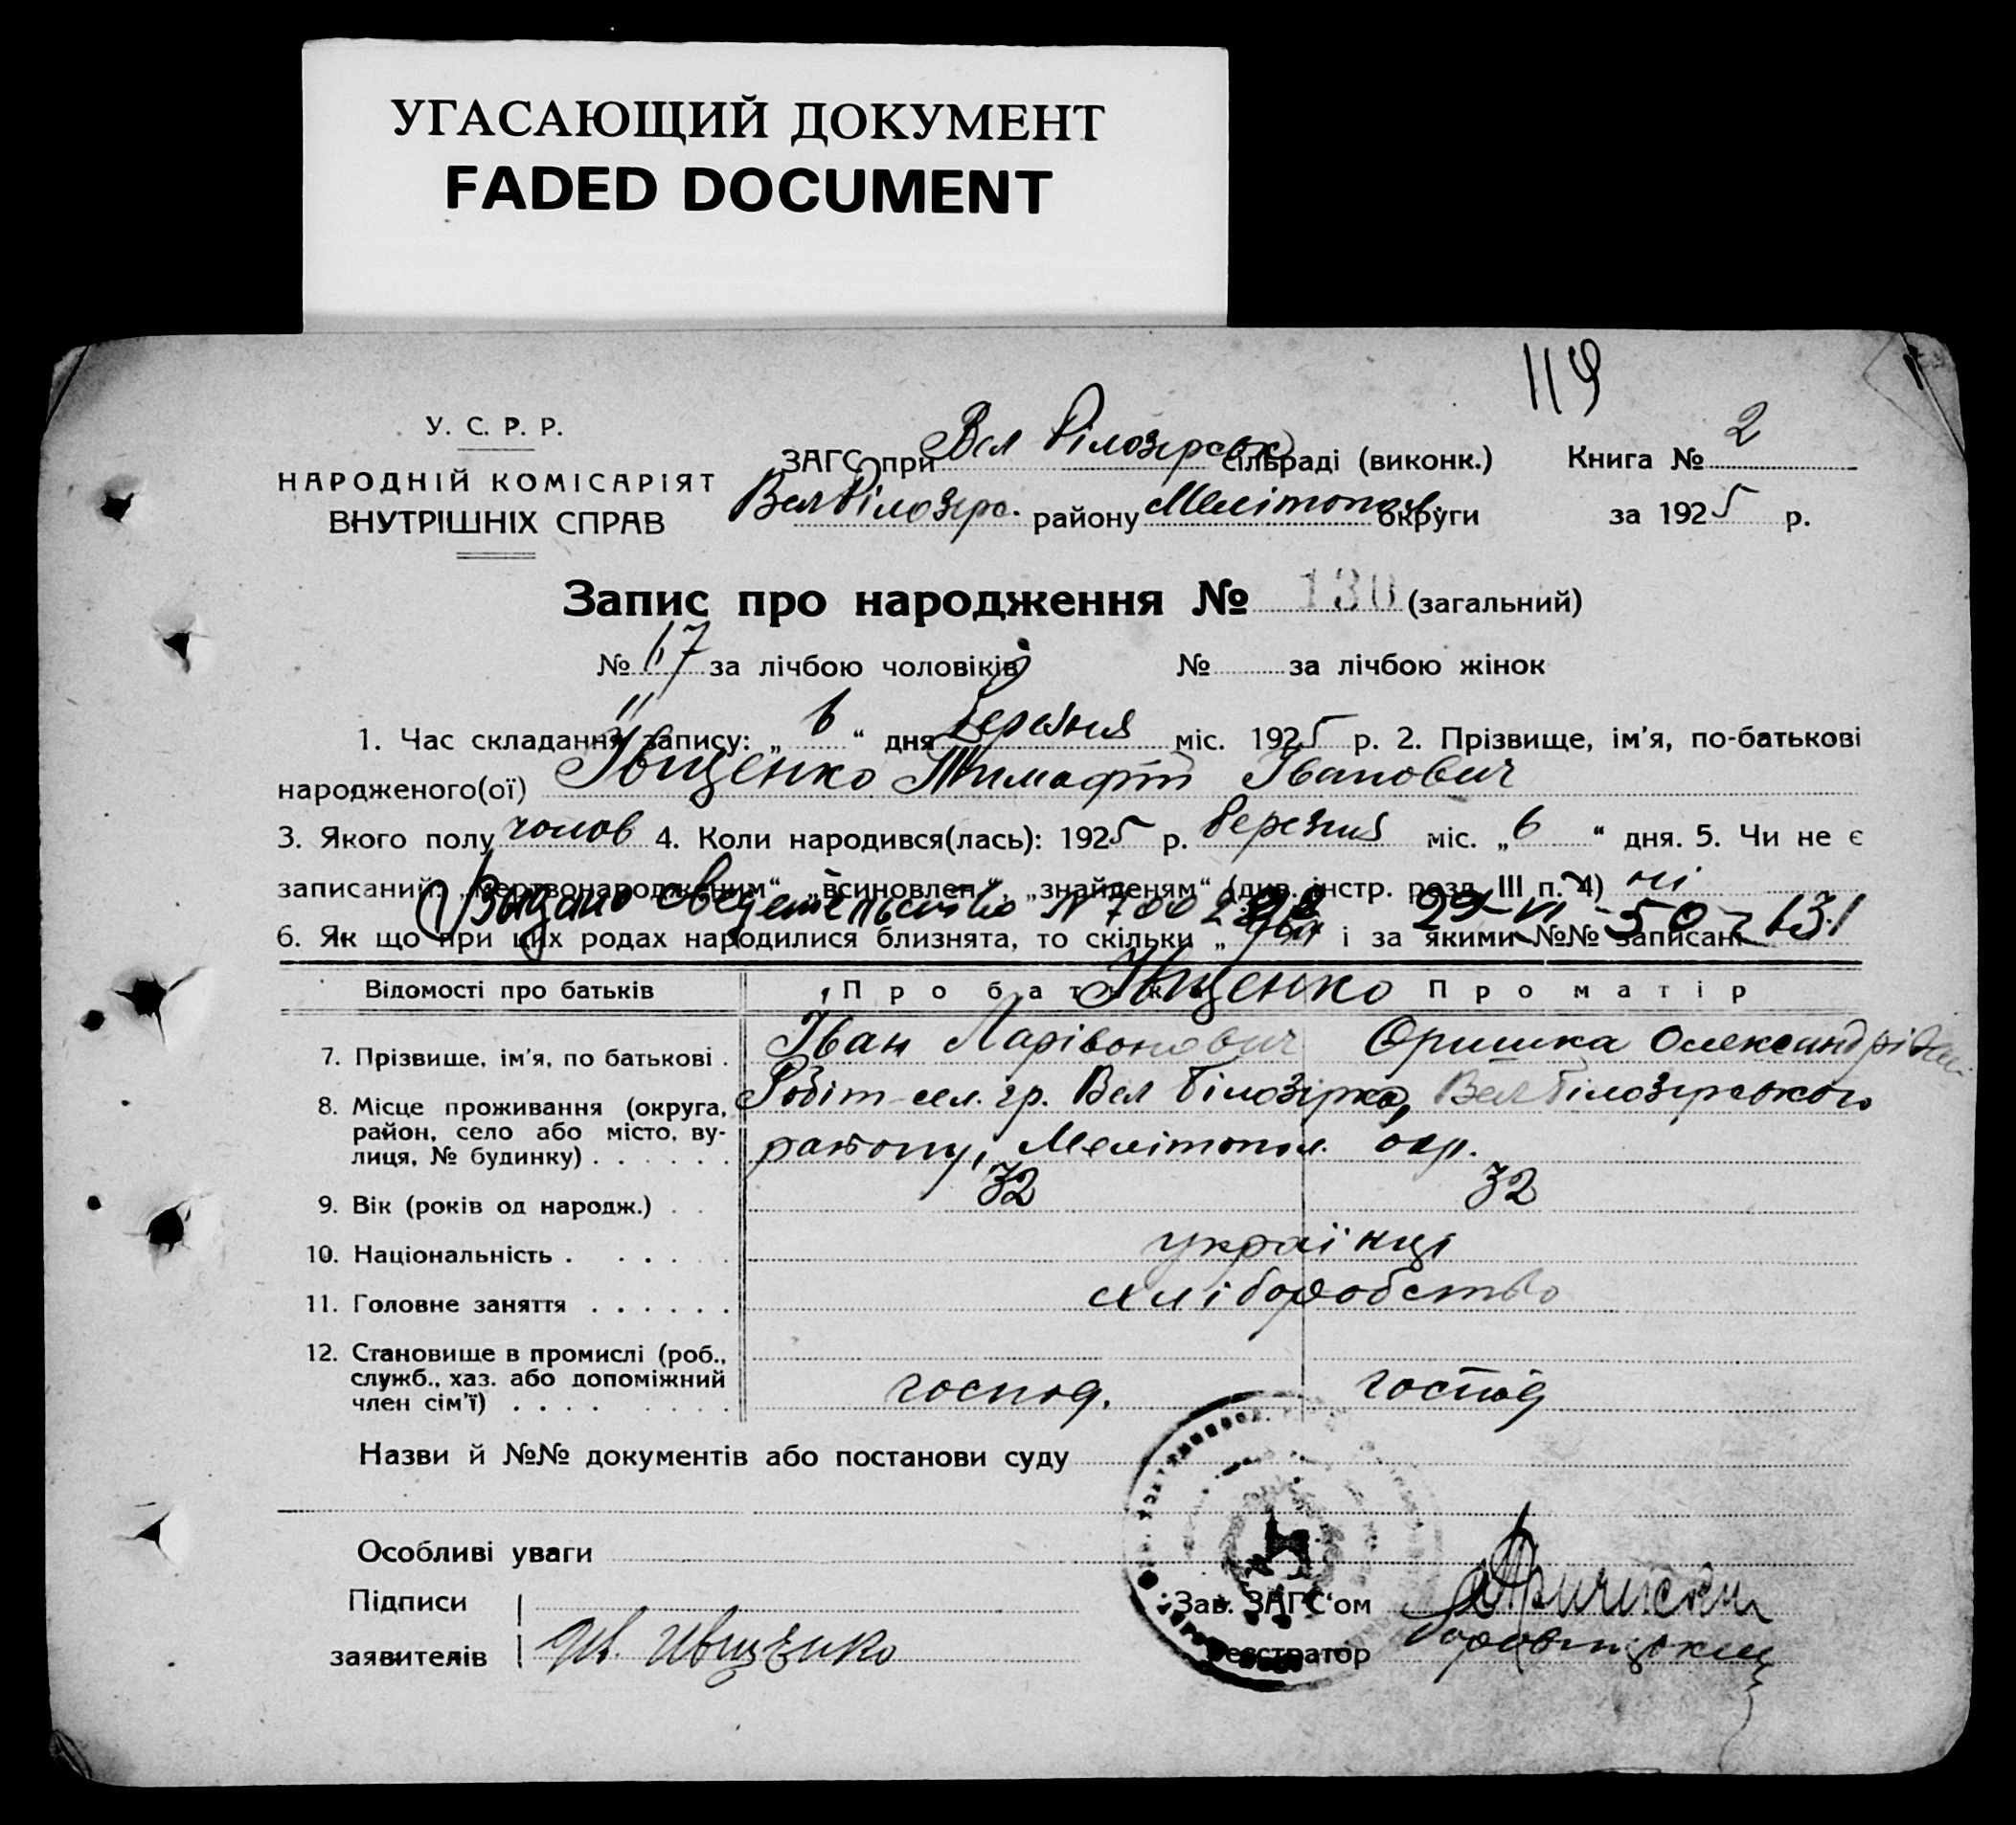 УГАСАЮЩИЙ ДОКУМЕНТ
FADED DOCUMENT
119
У. С. Р. Р.
НАРОДНІЙ КОМІСАРІЯТ
ВНУТРІШНІХ СПРАВ
ЗАГС при Вел Білозерськ сільраді (виконк.) Книга № 2
Вел Білозерс. району Мелітопол. округи за 1925 р.
Запис про народження № 130 (загальний)
№ 67 за лічбою чоловіків № за лічбою жінок
1. Час складання запису: „ 6 “ дня березня міс. 1925 р. 2. Прізвище, ім'я, по-батькові
народженого(ої) Іващенко Тимофій Іванович
3. Якого полу чолов 4. Коли народився(лась): 1925 р. березня міс. „ 6 “ дня. 5. Чи не є
записаний: „мертвонародженим“, „всиновлен.“, „знайденям“ (див. інстр. розд. III п. 4) ні
Выдано свидетельство №
6. Як що при цих родах народилися близнята, то скільки „ два і за якими №№ записані 131
Відомості про батьків Про батька Про матір
Іващенко
7. Прізвище, ім'я, по батькові . Іван Ларівонович Оришка Олександрівна
8. Місце проживання (округа, район, село або місто, вулиця, № будинку) . . . . . . сел. гр. Вел Білозірка, Вел Білозерського
району, Мелітопол. окр.
9. Вік (років од народж.) . . 32 32
10. Національність . . . . . українці
11. Головне заняття . . . . . . хліборобство
12. Становище в промислі (роб.,
служб., хаз. або допоміжний
член сім'ї) . . . . . . . . господ. господ
Назви й №№ документів або постанови суду
Особливі уваги
Підписи
заявителів Ив. Иващенко
Зав. ЗАГС'ом
Реєстратор